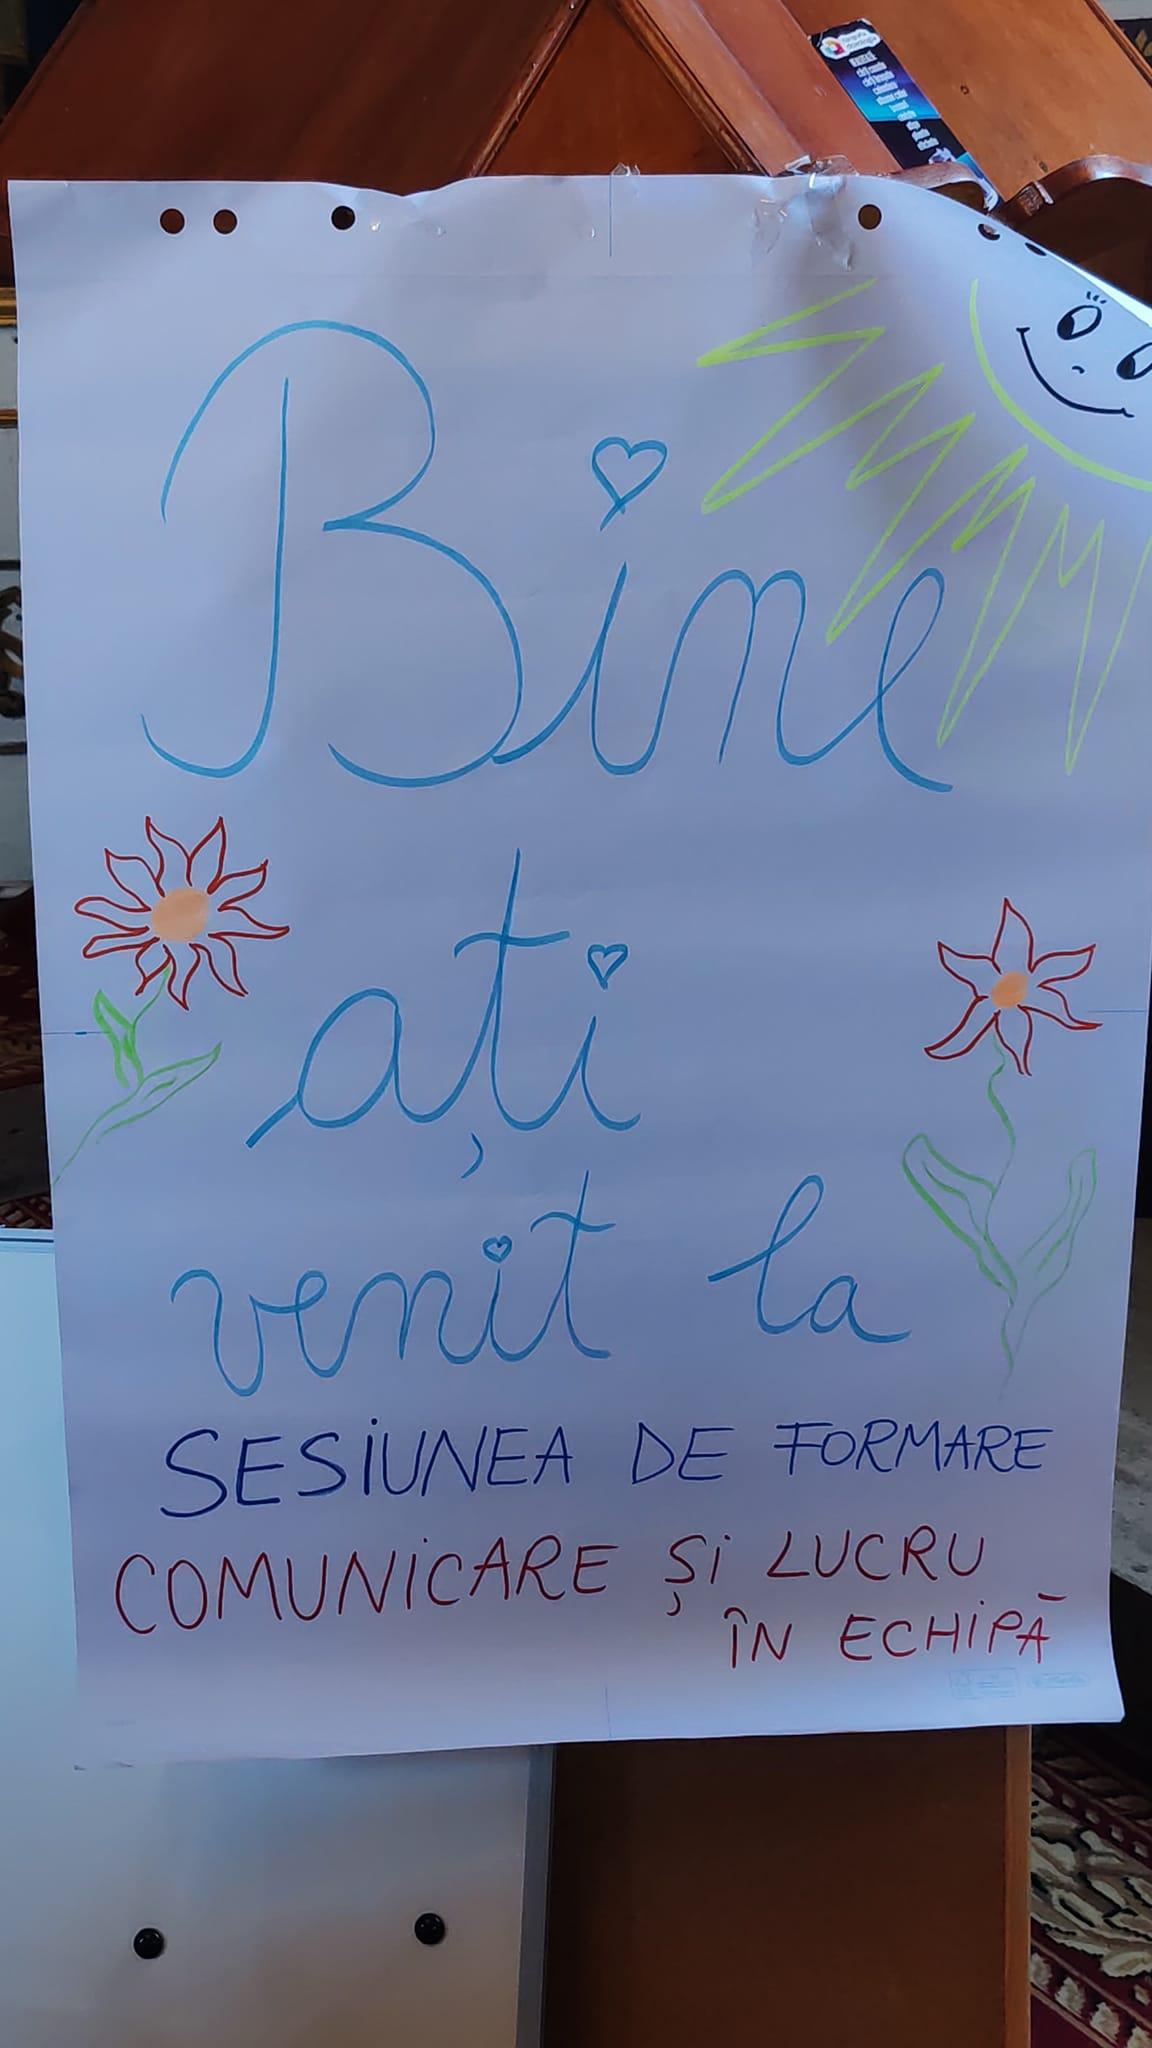 Bine
ați
venit la
SESIUNEA DE FORMARE
COMUNICARE ȘI LUCRU
ÎN ECHIPĂ